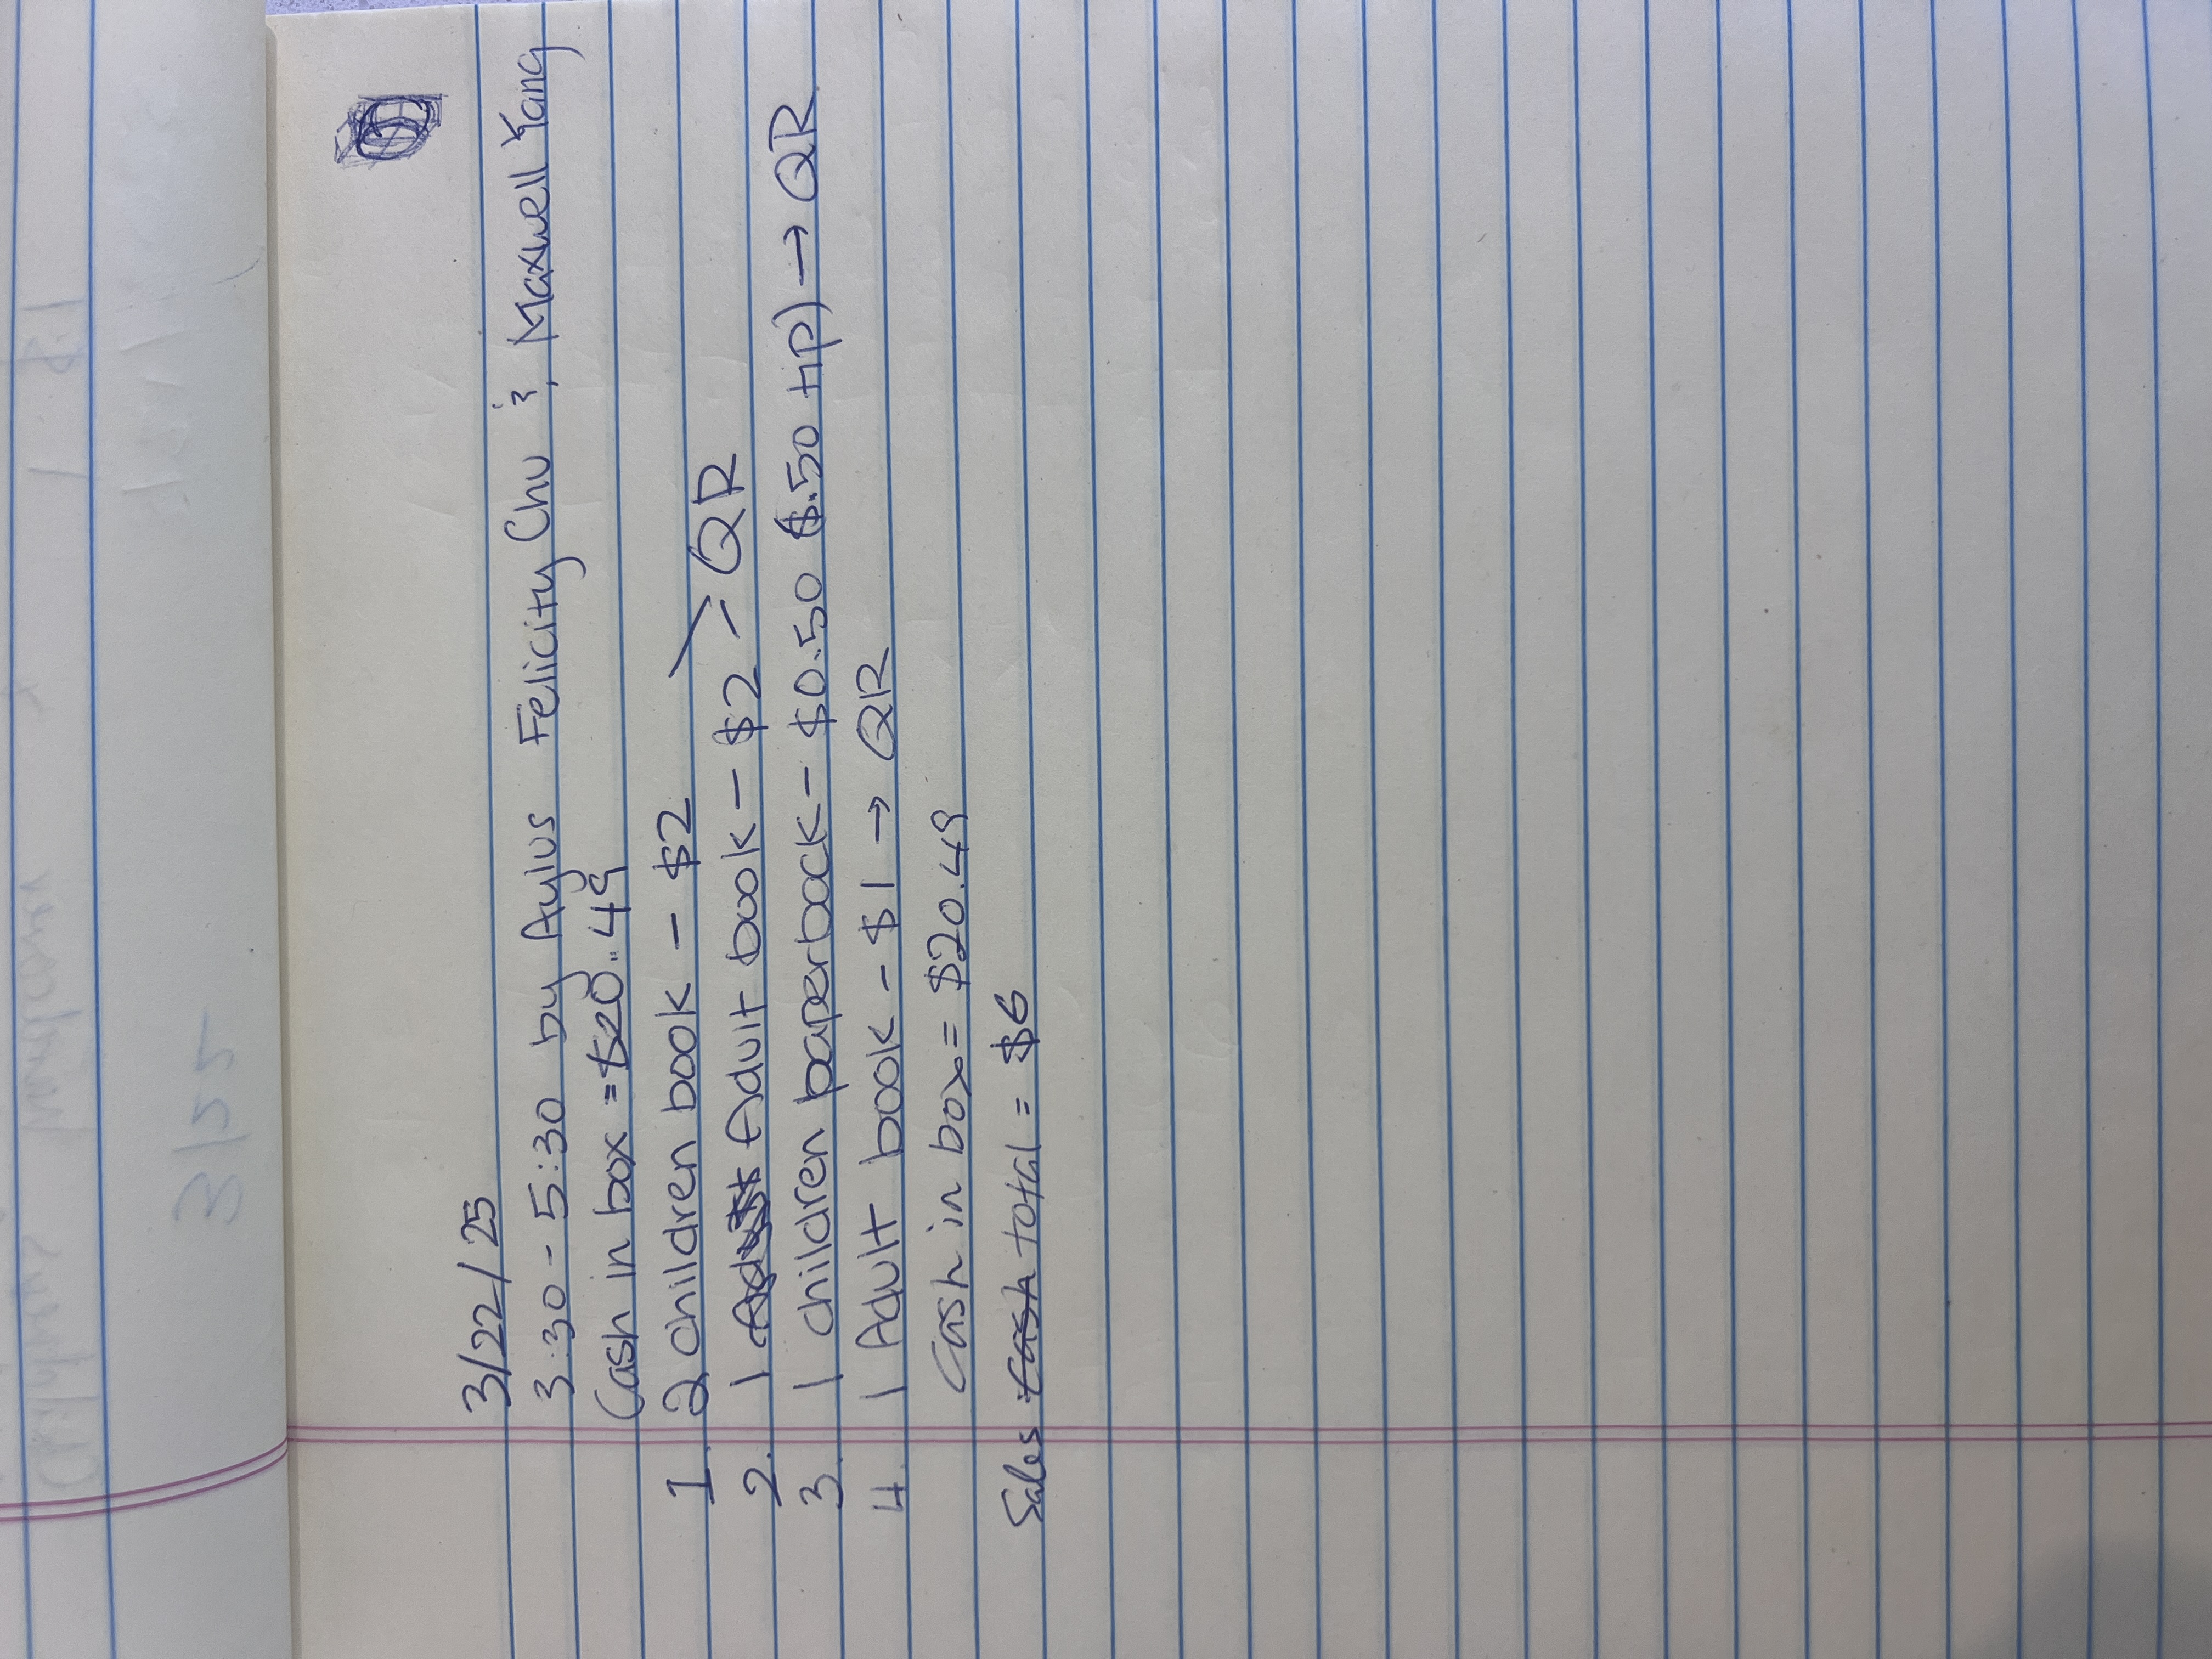 3/22/25
3:30 - 5:30 by Aylus Felicity Chu & Maxwell Yang
Cash in box = $20.49
1. 2 children book - $2
2. 1 Adult book - $2 > QR
3. 1 children paperback - $0.50 $.50 tip) → QR
4. 1 Adult book - $1 → QR
Cash in box = $20.49
Sales total = $6
3/22